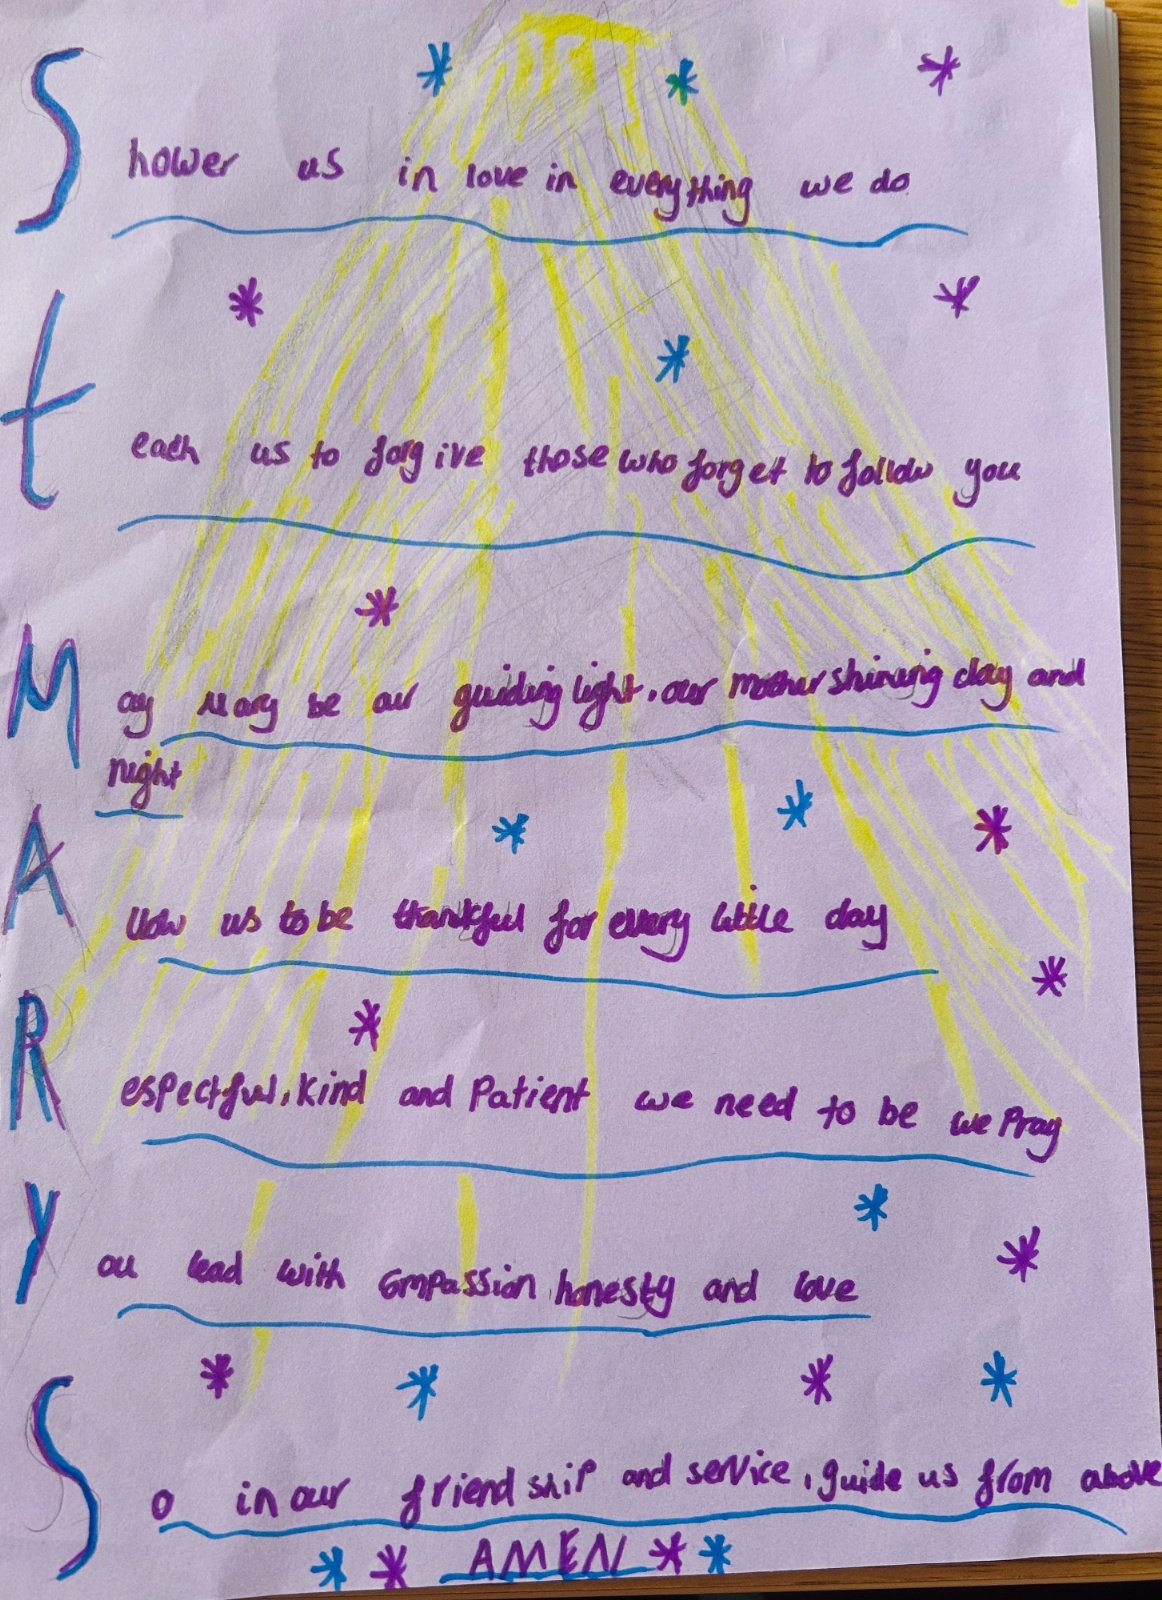 Shower us in love in everything we do
teach us to forgive those who forget to follow you
May Mary be our guiding light, our mother shining day and
night
Allow us to be thankful for every little day
Respectful, kind and Patient we need to be we Pray
You lead with compassion honesty and love
So in our friendship and service, guide us from above
AMEN